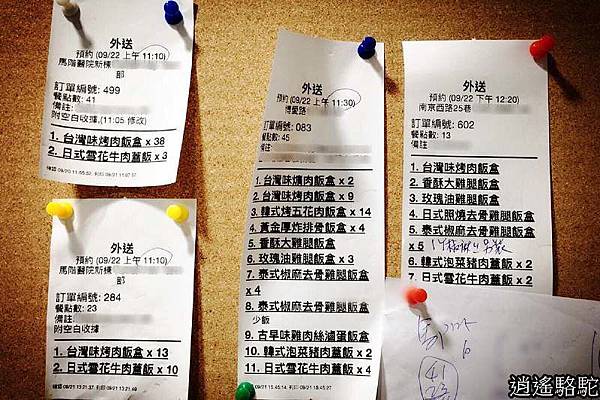 外送
預約 (09/22 上午 11:10)
馬階醫院新棟
邸
訂單編號: 499
餐點數: 41
備註:
附空白收據,(11:05 修改)
1. 台灣味烤肉飯盒 x 38
2. 日式雪花牛肉蓋飯 x 3
外送
預約 (09/22 上午 11:10)
馬階醫院新棟
邸
訂單編號: 284
餐點數: 23
備註:
附空白收據
1. 台灣味烤肉飯盒 x 13
2. 日式雪花牛肉蓋飯 x 10
外送
預約 (09/22 上午 11:30)
博愛路
訂單編號: 083
餐點數: 45
備註:
1. 台灣味爌肉飯盒 x 2
2. 台灣味烤肉飯盒 x 9
3. 韓式烤五花肉飯盒 x 14
4. 黃金厚炸排骨飯盒 x 4
5. 香酥大雞腿飯盒
6. 玫瑰油雞腿飯盒 x 3
7. 泰式椒麻去骨雞腿飯盒
x 4
8. 泰式椒麻去骨雞腿飯盒
少飯
9. 古早味雞肉絲滷蛋飯盒
10. 韓式泡菜豬肉蓋飯 x 2
11. 日式雪花牛肉蓋飯 x 4
外送
預約 (09/22 下午 12:20)
南京西路25巷
訂單編號: 602
餐點數: 13
備註:
1. 台灣味烤肉飯盒
2. 香酥大雞腿飯盒
3. 玫瑰油雞腿飯盒
4. 日式照燒去骨雞腿飯盒
5. 泰式椒麻去骨雞腿飯盒
x 5
6. 韓式泡菜豬肉蓋飯 x 2
7. 日式雪花牛肉蓋飯 x 2
6
41
23
逍遙駱駝